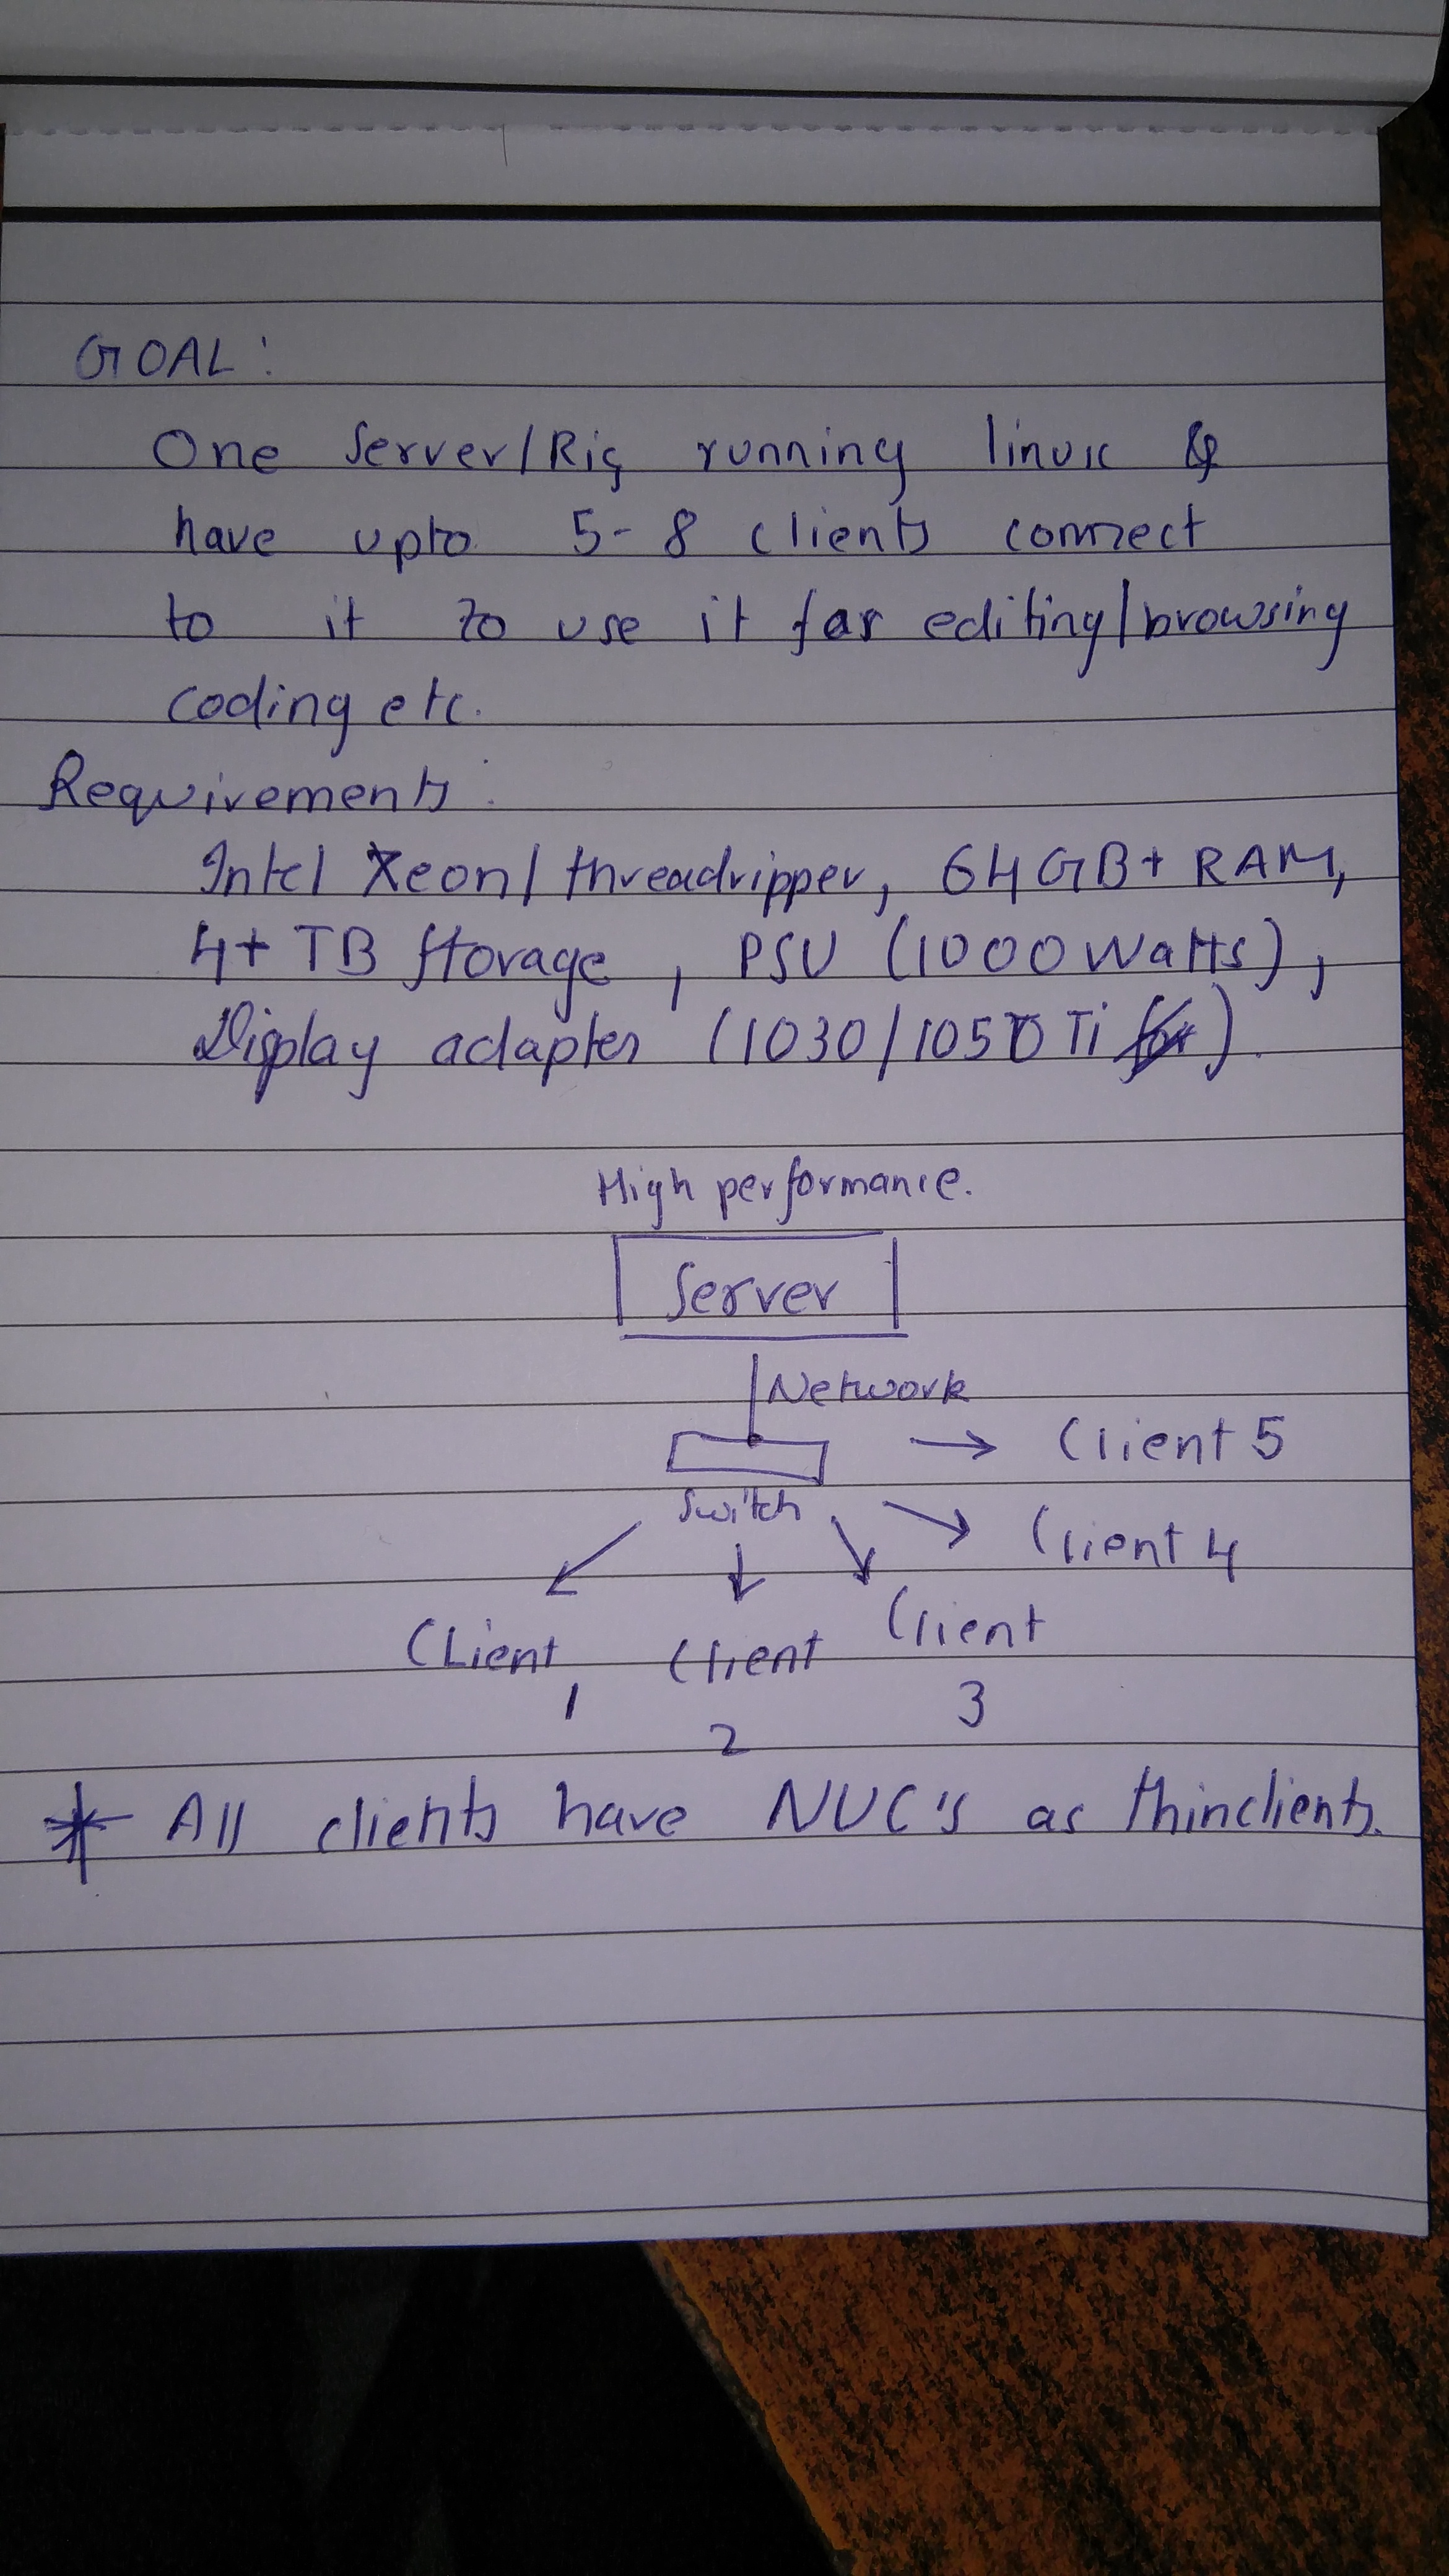 GOAL:
One Server/Rig running linux &
have upto 5-8 clients connect
to it to use it for editing/browsing
coding etc.
Requirements:
Intel Xeon/threadripper, 64GB+ RAM,
4+ TB Storage, PSU (1000 Watts),
Display adapter (1030/1050 Ti).
High performance.
Server
Network
Client 5
Switch
Client 4
Client 1
Client 2
Client 3
* All clients have NUC's as thinclients.